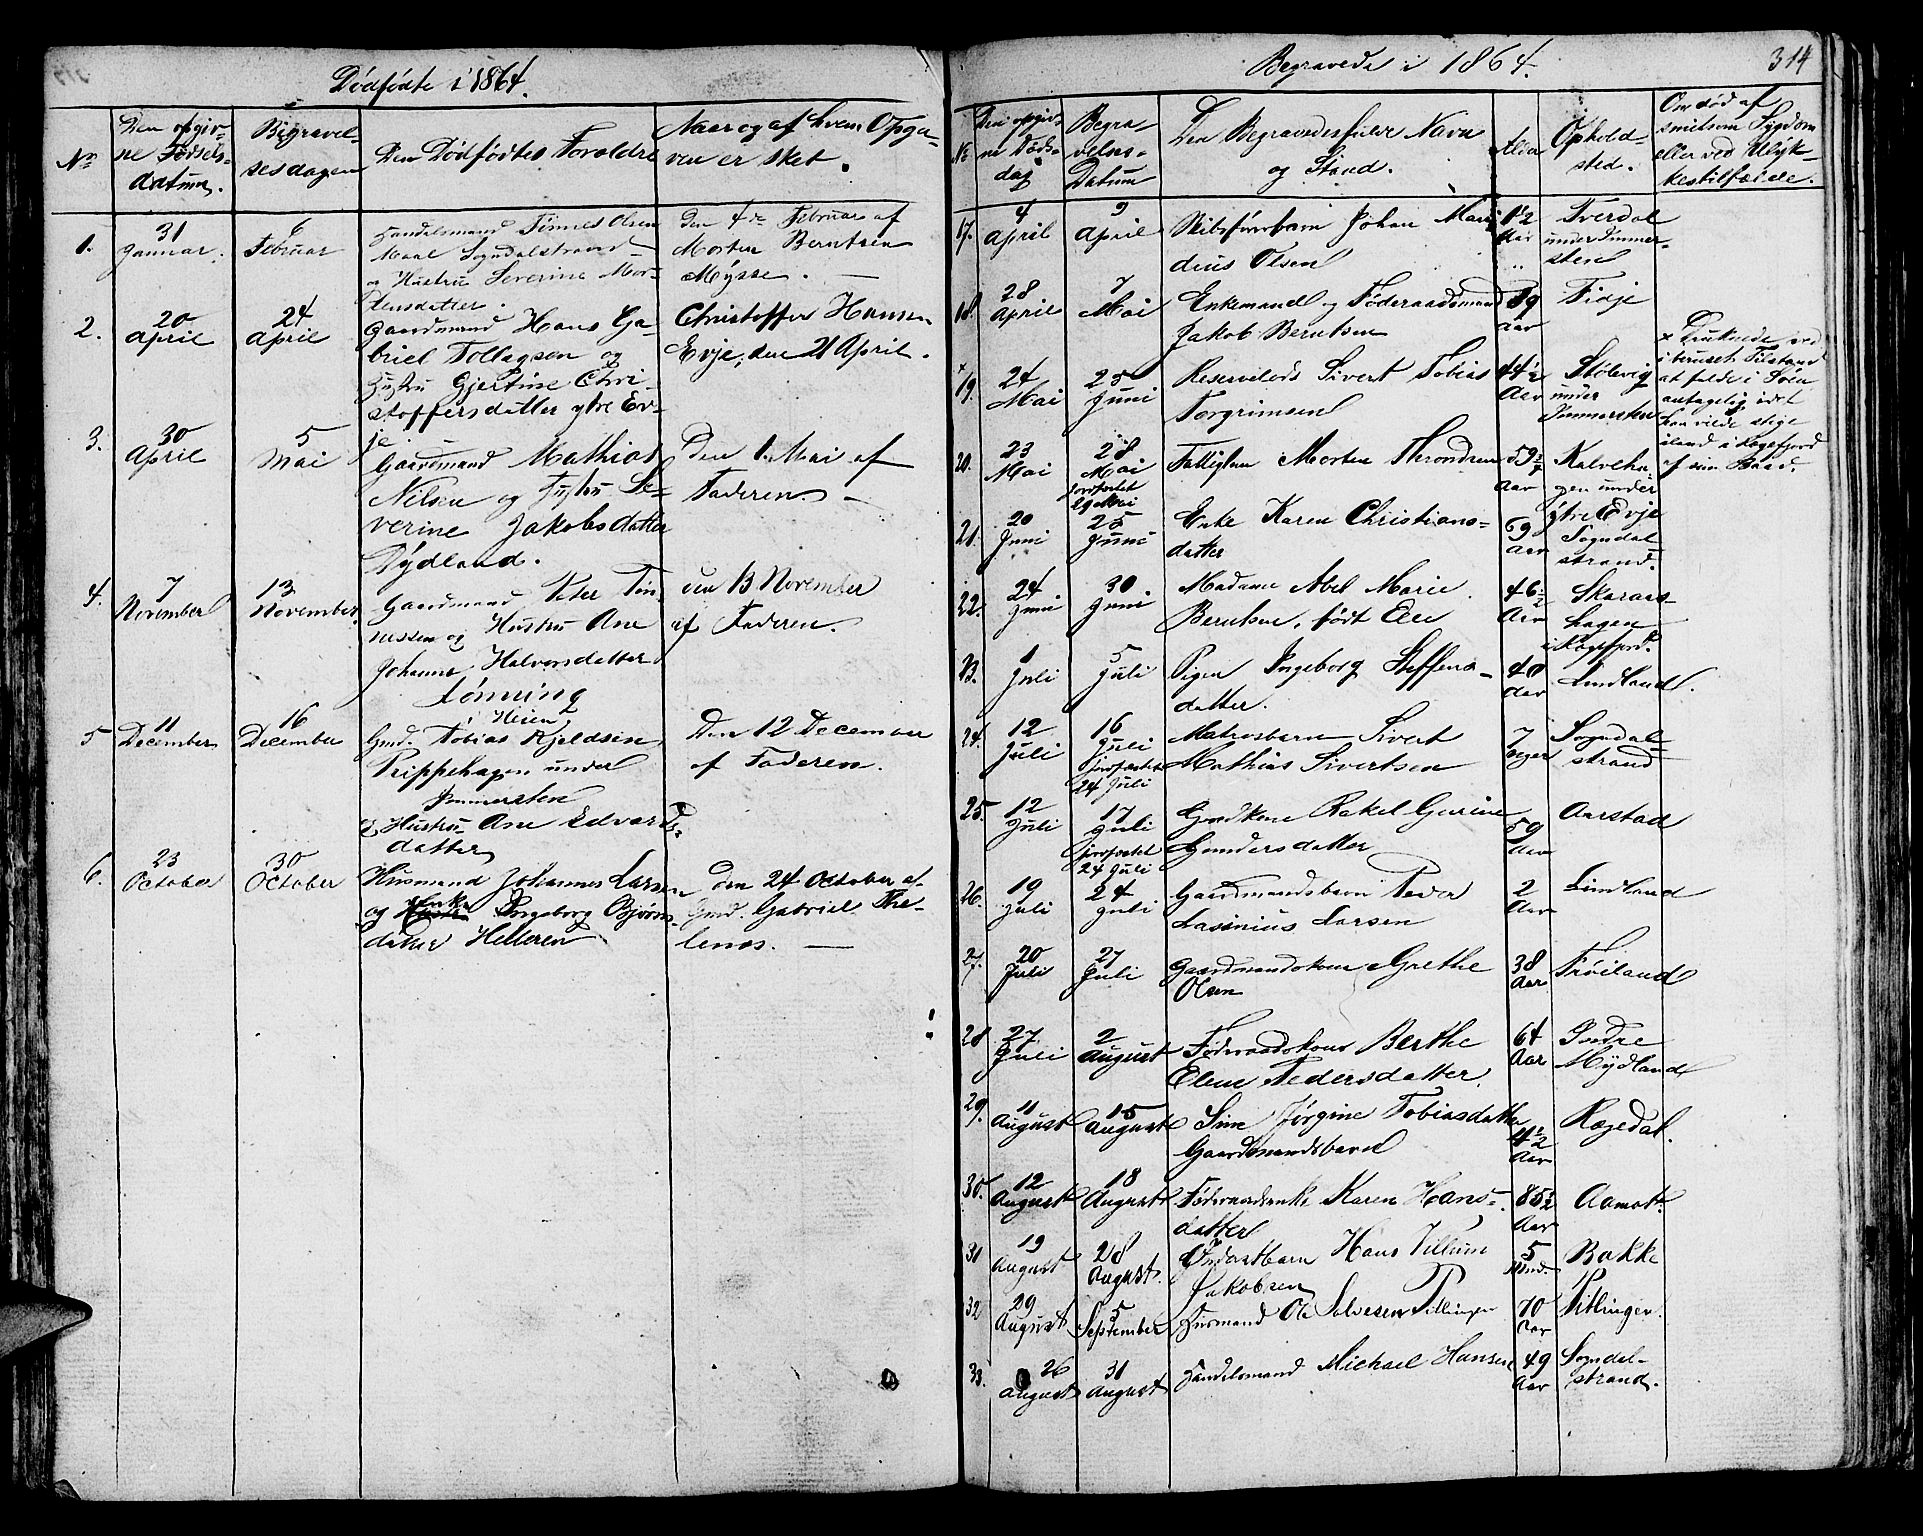 Dødfødte i 1864.
No
Den opgiv-
ne Fødsels-
datum.
Begravel-
sesdagen
Den Dødfødtes Foroldre
Naar og af hvem Opga-
ven er sket.
1.
31
Januar.
6
Februar
Handelsmand Tønnes Olsen
Maal Sogndalstrand
og Hustru Severine Mor-
tensdatter.
Den 4de Februar af
Morten Berntsen
Mysse.
2.
20
April
24
April
Gaardmand Hans Ga-
briel Tollagsen og
Hustru Gjertine Chri-
stoffersdatter ytre Ev-
je
Christoffer Hansen
Evje, den 21 April.
3.
30
April
5
Mai
Gaardmand Mathias
Nilsen og Hustru Se-
verine Jakobsdatter
Dydland.
Den 1. Mai af
Faderen
4.
7
November
13
November
Gaardmand Peter Tøn-
nessen og Hustru Ane
Johanne Halvorsdatter
Lønning
den 13 November
af Faderen.
5
11
December
16
December
Gmd. Tobias Kjeldsen
Trippehagen under
Immersten
og Hustru Ane Edvards-
datter
Den 12 December
af Faderen.
6.
23
October
30
October
Husmand Johannes Larsen
og Enke Ingeborg Bjørns-
datter Helleren
den 24 October af
Gmd. Gabriel The-
lenes.
Begravede i 1864.
314
No
Den opgiv-
ne Døds-
dag
Begra-
velses-
Datum
Den Begravedes fulde Navn
og Stand.
Alder
Ophold-
sted.
Om død af
smitsom Sygdom
eller ved Ulyk-
kestilfælde.
17.
4
April
9
April
Skibsførerbarn Johan Mari-
dius Olsen
1 1/2
Aar
Tverdal
under Immer-
sten
18.
28
April
7
Mai
Enkemand og Føderaadsmand
Jakob Berntsen
89
Aar
Fidje
19.
24
Mai
25
Juni
Reservelods Sivert Tobias
Torgrimsen
44 1/2
Aar
Stølevig
under
Immersten
x Druknede ved
i beruset Tilstand
at falde i Søen
antagelig idet
han vilde stige
iland i Rægefjord
af sin Baad.
20.
23
Mai
28
Mai
jordfæstet
29 Mai
Fattiglem Morten Throndsen
59 1/2
Aar
Kalveha-
gen under
ytre Evje
21.
20
Juni
25
Juni
Enke Karen Christians-
datter
69
Aar
Sogndal
strand.
22.
24
Juni
30
Juni
Madame Abel Marie
Berntsen, født Eie
46 1/2
Aar
Skaraas-
hagen
i Rægefjord.
23.
1
Juli
5
Juli
Pigen Ingeborg Steffens-
datter.
40
Aar
Lindland.
24.
12
Juli
16
Juli
jordfæstet
24 Juli
Matrosbarn Sivert
Mathias Sivertsen
7
Uger
Sogndal-
strand
25.
12
Juli
17
Juli
jordfæstet
24 Juli
Gmdkone Rakel Gurine
Gundersdatter
59
Aar
Aarstad
26.
19
Juli
24
Juli
Gaardmandsbarn Peder
Lasinius Larsen
2
Aar
Lindland
27.
20
Juli
27
Juli
Gaardmandskone Grethe
Olsen
38
Aar
Frøiland
28
27
Juli
2
August
Føderaadskone Berthe
Elene Pedersdatter.
64
Aar
Indre
Mydland
29.
11
August
15
August
Sine Jørgine Tobiasdatter
Gaardmandsbarn
4 1/2
Aar
Rægedal.
30.
12
August
18
August
Føderaadsenke Karen Hans-
datter
85 1/2
Aar
Aamot.
31
19
August
28
August.
Inderstbarn Hans Villum
Jakobsen
5
Mnd.
Bakke
32
29
August
5
September
Husmand Ole Salvesen Pitlingen
70
Aar
Pitlingen.
33.
26
August
31
August
Handelsmand Michael Hansen
49
Aar
Sogndal-
strand.